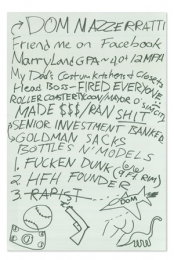 DOM NAZZERRATTI
Friend me on Facebook
MarryLand GPA ~ 4.0! 12 MPA
My Dad's Costum Kitchens & Closets
Head Boss - FIRED EVERYONE
ROLLERCOASTER TYCOON/MAYOR O' SIMCITY
MADE $$$/RAN SHIT
SENIOR INVESTMENT BANKER
GOLDMAN SACKS
BOTTLES N' MODELS
1. FUCKEN DUNK (9 FT. RIM)
2. HFH FOUNDER
3. RAPIST
DOM